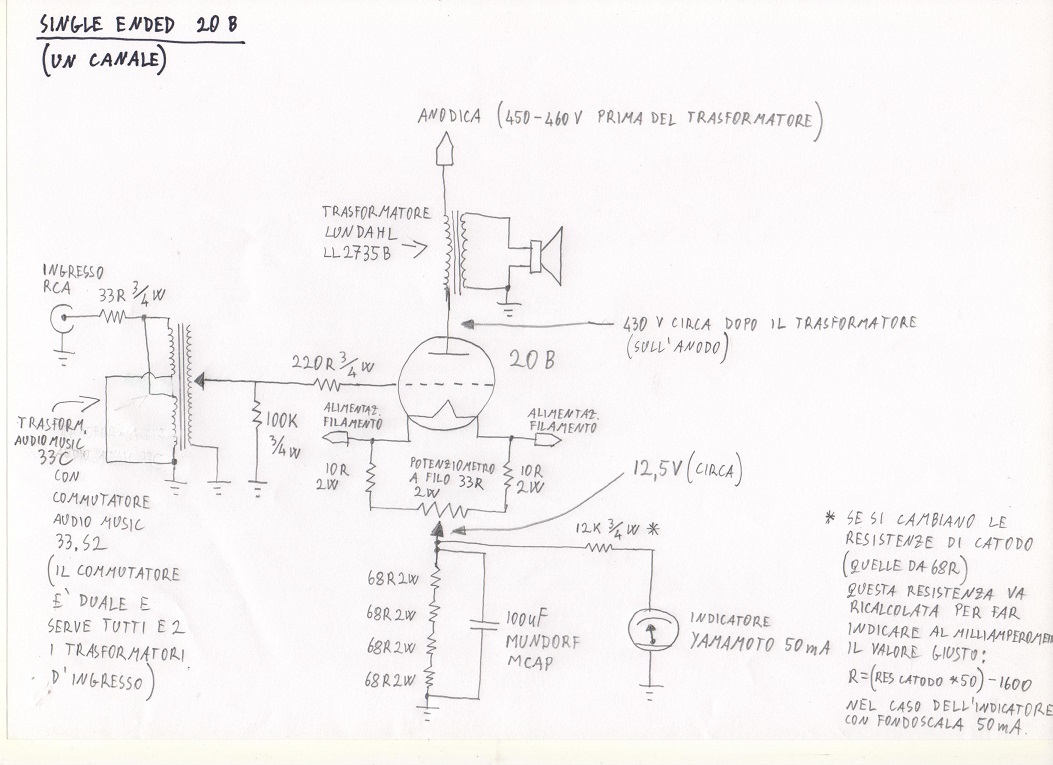 SINGLE ENDED 20 B
(UN CANALE)
ANODICA (450-460 V PRIMA DEL TRASFORMATORE)
TRASFORMATORE
LUNDAHL
LL2735B
INGRESSO
RCA
33R 3/4 W
430 V CIRCA DOPO IL TRASFORMATORE
(SULL'ANODO)
220R 3/4 W
20 B
100K
3/4 W
ALIMENTAZ.
FILAMENTO
ALIMENTAZ.
FILAMENTO
TRASFORM.
AUDIO MUSIC
33C
CON
COMMUTATORE
AUDIO MUSIC
33.S2
(IL COMMUTATORE
E' DUALE E
SERVE TUTTI E 2
I TRASFORMATORI
D'INGRESSO)
10R
2W
POTENZIOMETRO
A FILO 33R
2W
10R
2W
12,5V (CIRCA)
12K 3/4 W *
68R 2W
68R 2W
68R 2W
68R 2W
100uF
MUNDORF
MCAP
INDICATORE
YAMAMOTO 50 mA
* SE SI CAMBIANO LE
RESISTENZE DI CATODO
(QUELLE DA 68R)
QUESTA RESISTENZA VA
RICALCOLATA PER FAR
INDICARE AL MILLIAMPEROME
IL VALORE GIUSTO:
R=(RES CATODO *50)-1600
NEL CASO DELL'INDICATORE
CON FONDOSCALA 50 mA.